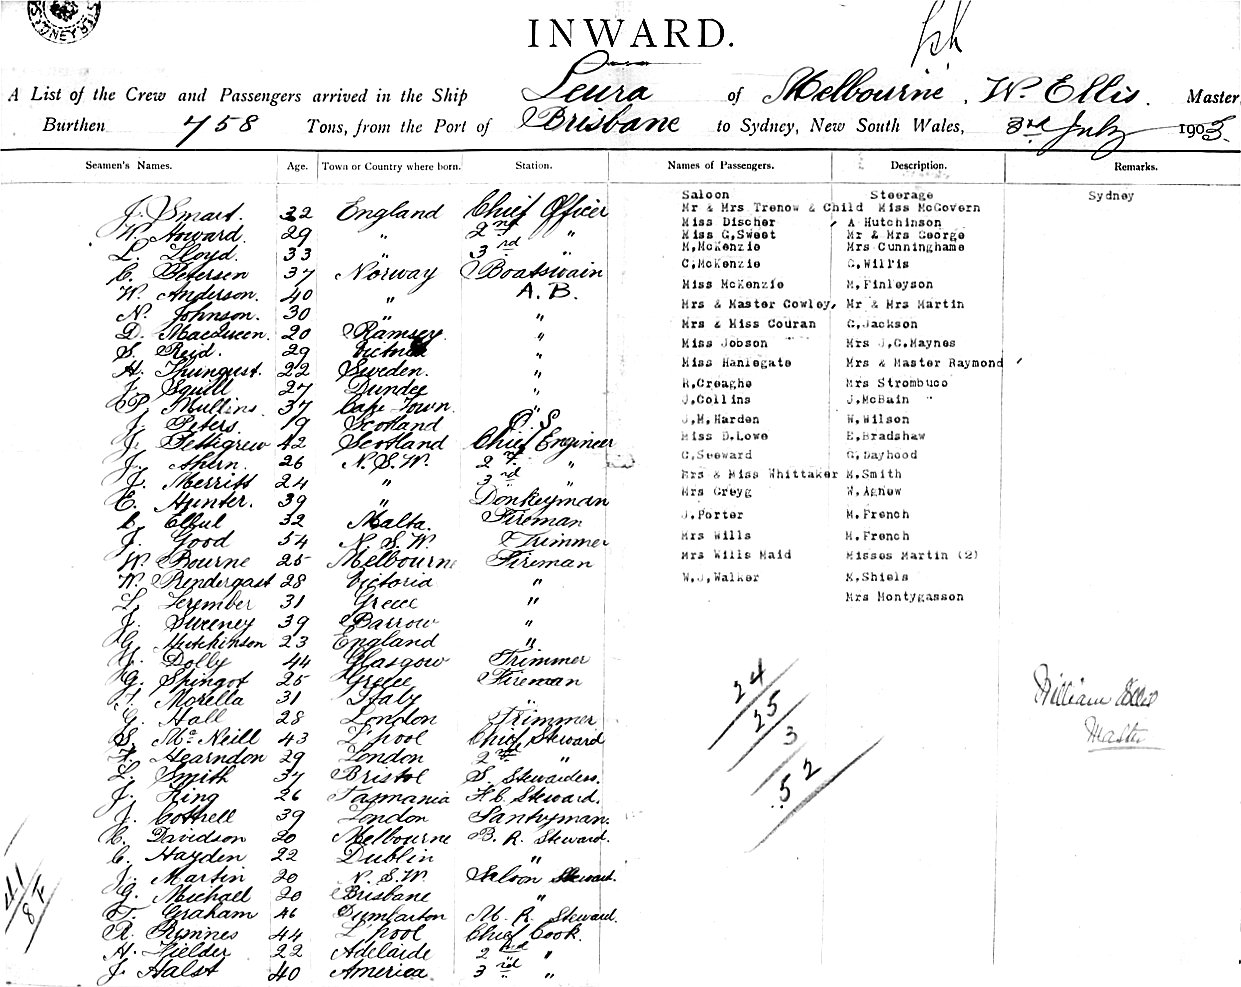 SYDNEY
INWARD.
A List of the Crew and Passengers arrived in the Ship Leura of Melbourne, W. Ellis. Master,
Burthen 758 Tons, from the Port of Brisbane to Sydney, New South Wales, 3rd July 1903.
Seamen's Names. Age. Town or Country where born. Station. Names of Passengers. Description. Remarks.
Saloon Steerage Sydney
J. Smart. 32 England Chief Officer
Mr & Mrs Trenow & Child Miss McGovern
Miss Discher A Hutchinson
W. Howard. 29 " 2nd "
Miss G.Sweet Mr & Mrs George
L. Lloyd. 33 " 3rd "
M.McKenzie Mrs Cunninghame
C. Petersen 37 Norway Boatswain
C.McKenzie G.Willis
W. Anderson. 40 " A.B.
Miss McKenzie M.Finleyson
N. Johnson. 30 " "
Mrs & Master Cowley, Mr & Mrs Martin
D. MacQueen. 20 Ramsey "
Mrs & Miss Couran C.Jackson
S. Reid. 29 Victoria "
Miss Jobson Mrs J.C.Maynes
H. Thungust. 22 Sweden. "
Miss Hanlegate Mrs & Master Raymond
J. Squill 27 Dundee "
R.Creaghe Mrs Strombuco
P. Mullins. 37 Cape Town. "
J.Collins J.McBain
J. Peters. 19 Scotland O.S
J.M.Harden W.Wilson
J. Pettigrew 42 Scotland Chief Engineer
Miss D.Lowe E.Bradshaw
J. Ahern. 26 N.S.W. 2nd "
C.Seeward G.Dayhood
J. Merritt 24 " 3rd "
Mrs & Miss Whittaker M.Smith
E. Hunter. 39 " Donkeyman
Mrs Greyg W.Agnew
C. Ellul 32 Malta. Fireman
J.Porter M.French
J. Good 54 N.S.W. Trimmer
Mrs Wills M.French
W. Bourne 25 Melbourne Fireman
Mrs Wills Maid Misses Martin (2)
W. Prendergast 28 Victoria "
W.J.Walker K.Shiels
L. Serember 31 Greece "
Mrs Montygasson
J. Sweeney 39 Barrow "
G. Hutchinson 23 England "
J. Dolly 44 Glasgow Trimmer
G. Spingot 25 Greece Fireman
F. Morella 31 Italy "
G. Hall 28 London Trimmer
S. McNeill 43 L'pool Chief Steward
F. Hearndon 29 London 2nd "
L. Smith 37 Bristol S. Stewardess.
J. King 26 Tasmania F.C. Steward.
J. Cottrell 39 London Pantryman.
C. Davidson 20 Melbourne B.R. Steward.
C. Hayden 22 Dublin "
J. Martin 20 N.S.W. Saloon Steward.
G. Michael 20 Brisbane "
T. Graham 46 Dumbarton M.R. Steward.
R. Rimnes 44 L'pool Chief Cook.
H. Fielder 22 Adelaide 2nd "
J. Halst 40 America 3rd "
24
25
3
52
William Ellis
Master
41
8 F